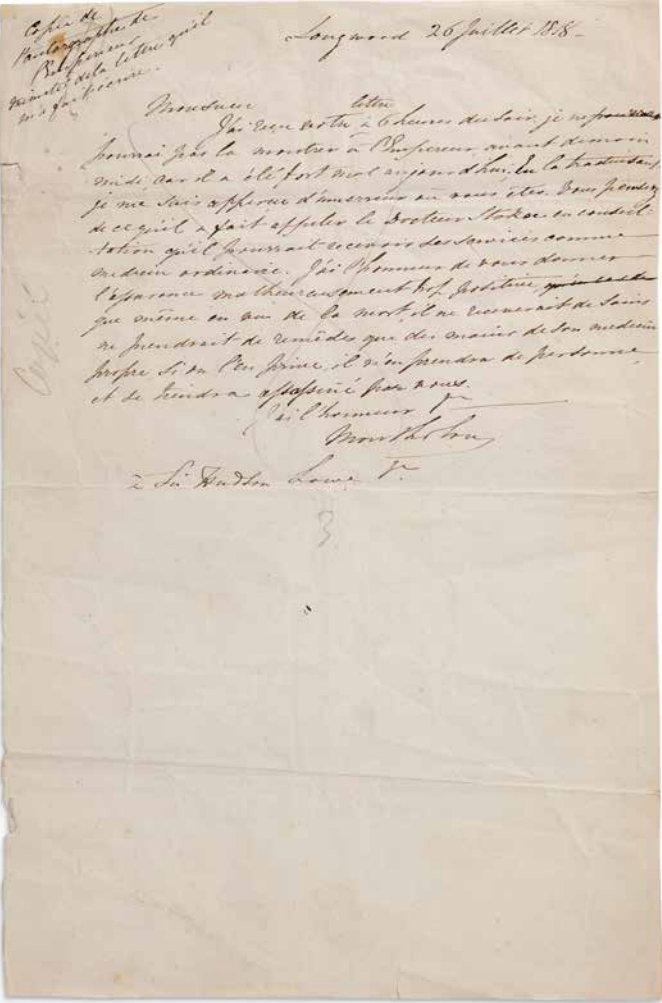 Copie de
l'autographe de
l'Empereur
minute de la lettre qu'il
m'a fait écrire.
Longwood 26 Juillet 1818
Monsieur
lettre
J'ai reçu votre à 6 heures du soir, je ne
pourrai pas la montrer à l'Empereur avant demain
midi car il a été fort mal aujourd'hui. En la traduisant
je me suis apperçu d'une erreur où vous êtes. Vous pensez
de ce qu'il a fait appeler le Docteur Stokoe en consul-
tation qu'il pourrait recevoir ses services comme
medecin ordinaire. J'ai l'honneur de vous donner
l'assurance malheureusement trop positive,
que même en vue de la mort il ne recevrait de soins
ne prendrait de remèdes que des mains de son medecin
propre si on l'en prive, il n'en prendra de personne
et se tiendra assassiné par vous.
J'ai l'honneur
Montholon
à Sir Hudson Lowe
Copié
3